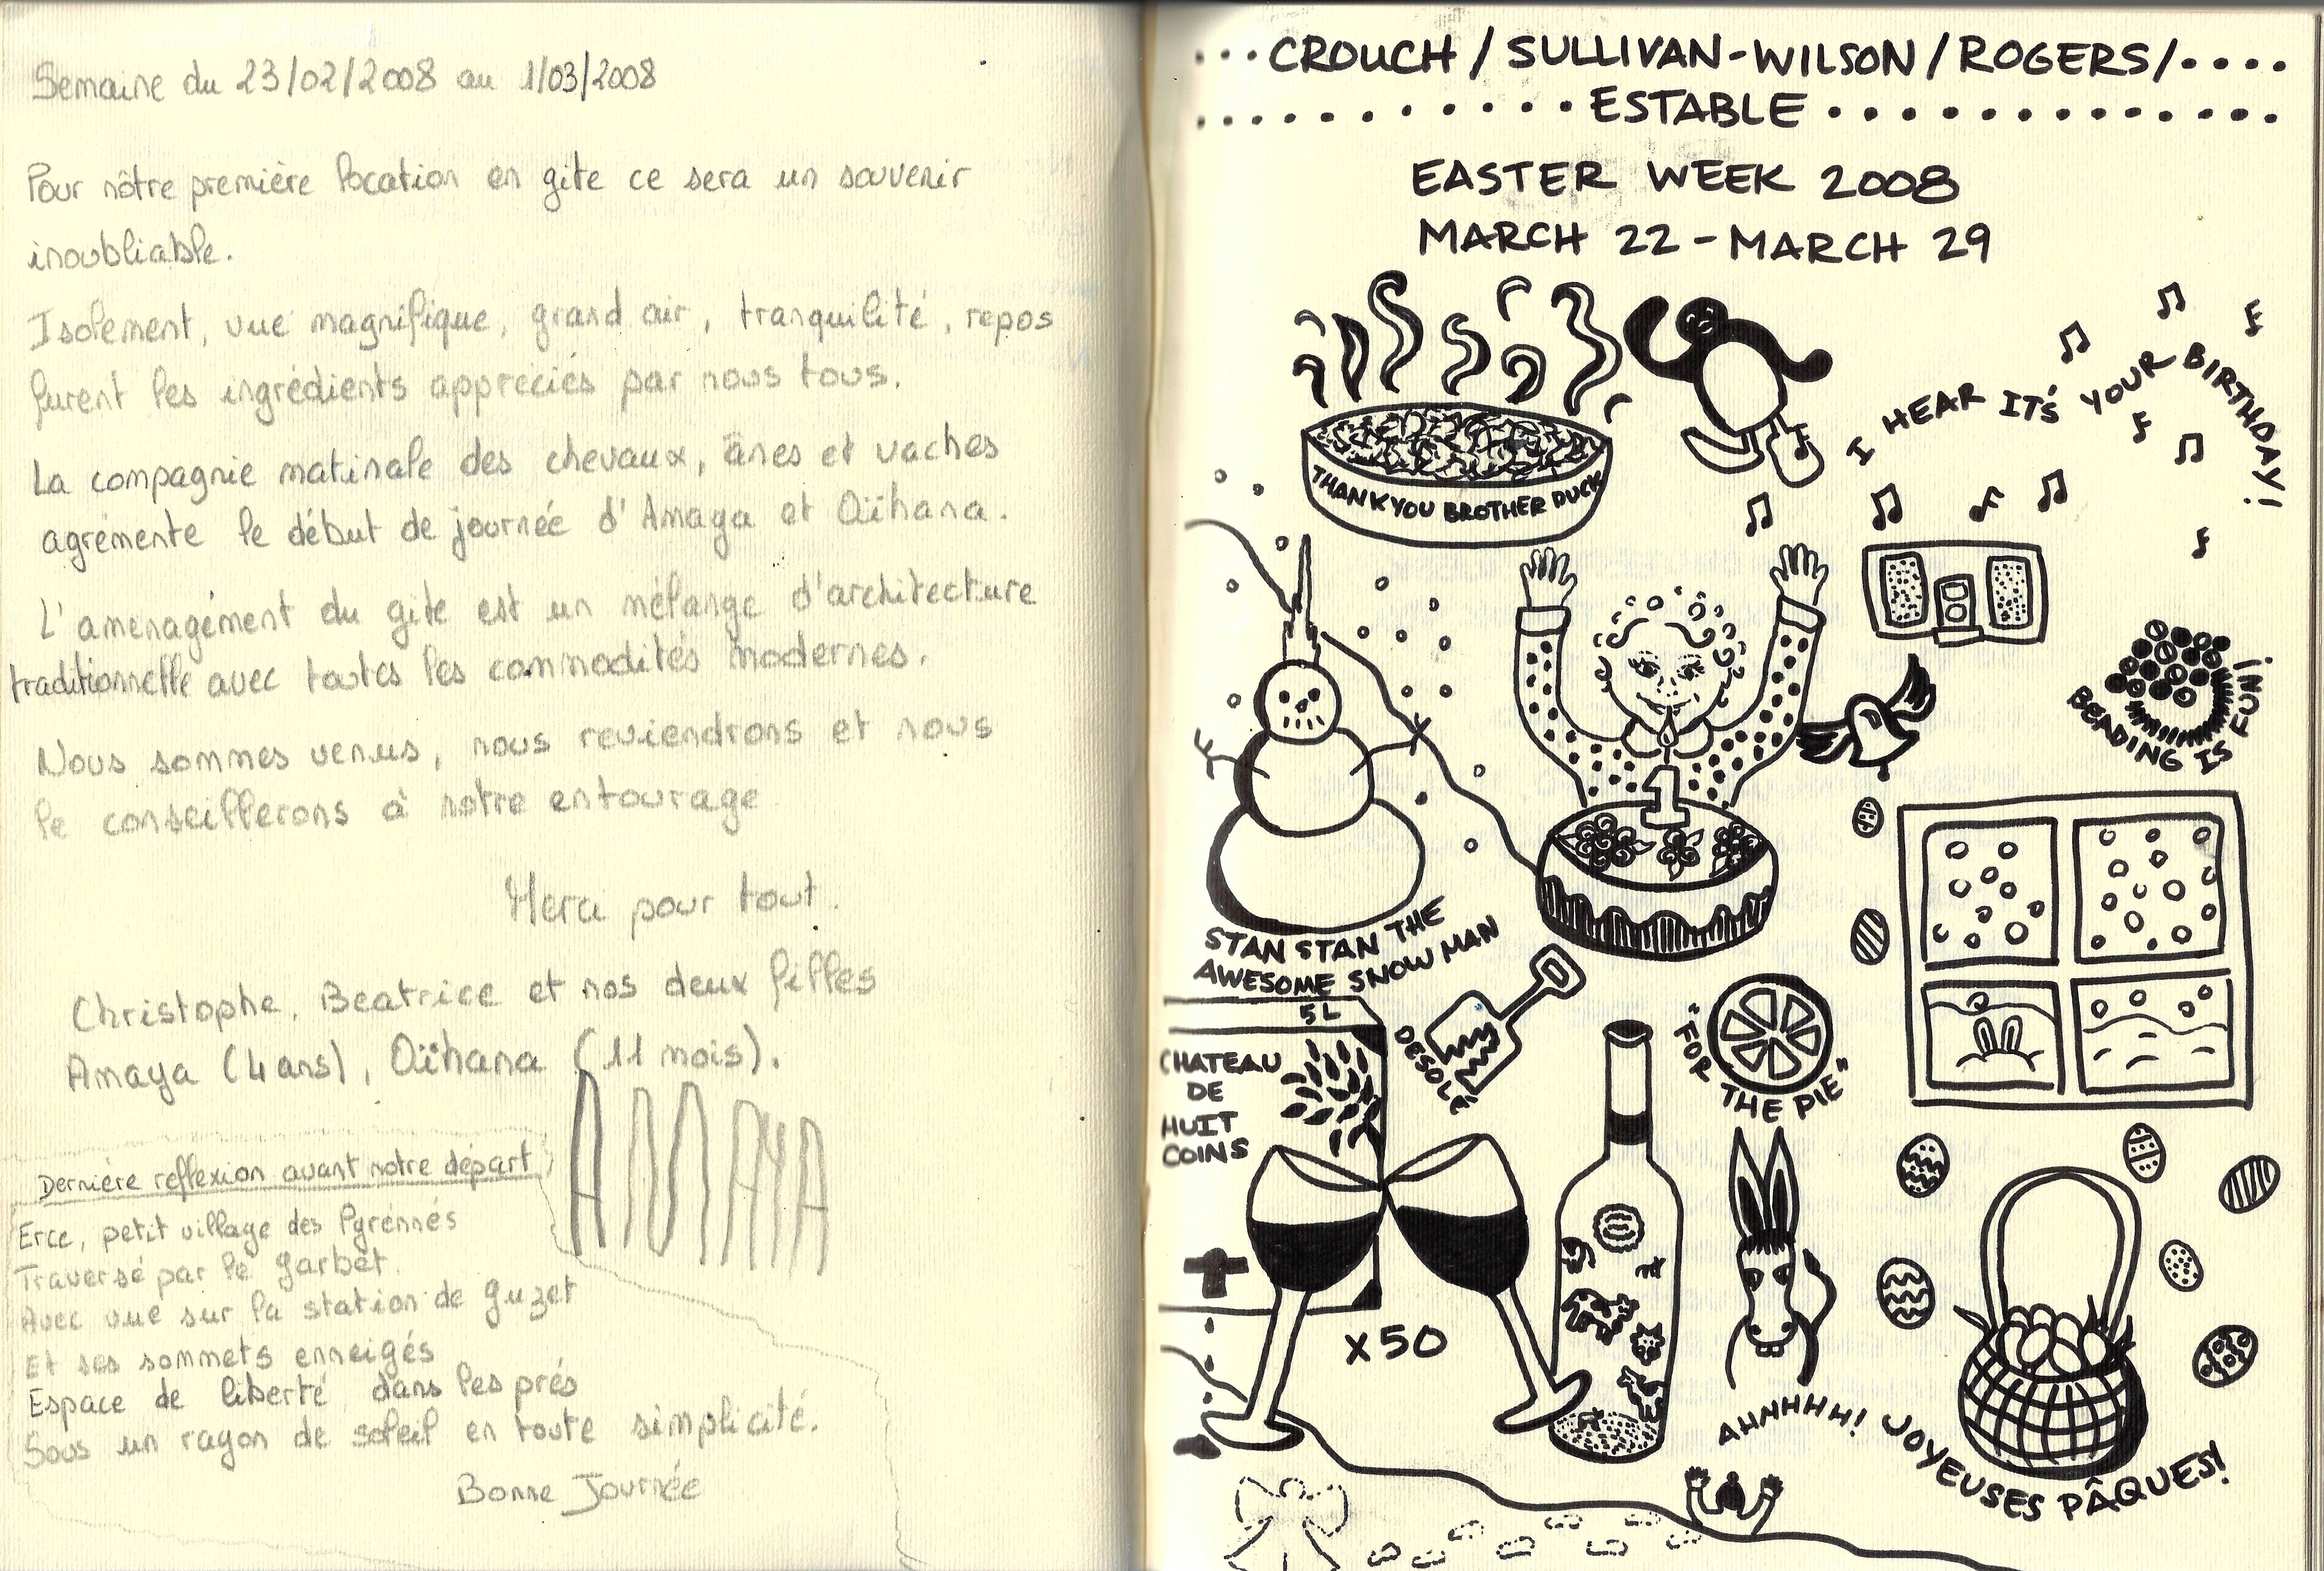 Semaine du 23/02/2008 au 1/03/2008
Pour nôtre première location en gite ce sera un souvenir
inoubliable.
Isolement, vue magnifique, grand air, tranquilité, repos
furent les ingrédients appreciés par nous tous.
La compagnie matinale des chevaux, ânes et vaches
agrémente le début de journée d'Amaya et Oïhana.
L'amenagément du gite est un mélange d'architecture
traditionnelle avec toutes les commodités modernes.
Nous sommes venus, nous reviendrons et nous
le conseillerons à notre entourage
Merci pour tout.
Christophe, Beatrice et nos deux filles
Amaya (4 ans), Oïhana (11 mois).
AMAYA
Dernière reflexion avant notre départ
Erce, petit village des Pyrénnés
Traversé par le garbet.
Avec vue sur la station de guzet
Et ses sommets enneigés
Espace de liberté dans les prés
Sous un rayon de soleil en toute simplicité.
Bonne Journée
CROUCH / SULLIVAN-WILSON / ROGERS/
ESTABLE
EASTER WEEK 2008
MARCH 22 - MARCH 29
I HEAR IT'S YOUR BIRTHDAY!
THANK YOU BROTHER DUCK
BEADING IS FUN!
1
STAN STAN THE
AWESOME SNOW MAN
5L
CHATEAU
DE
HUIT
COINS
DESOLÉ
"FOR THE PIE"
X50
AHNHHH!
JOYEUSES PÂQUES!